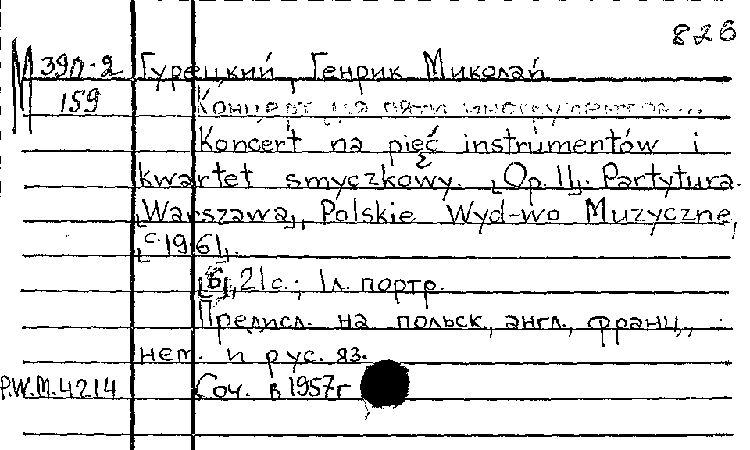 826
М 39п-2 Гурецкий, Генрик Миколай
159 Концерт для пяти инструментов...
Koncert na pięć instrumentów i
kwartet smyczkowy. [Op. 11]. Partytura.
[Warszawa], Polskie Wyd-wo Muzyczne,
[c 1961].
[6], 21 с.; 1 л. портр.
Предисл. на польск., англ., франц.,
нем. и рус. яз.
P.W.M. 4214 Соч. в 1957г